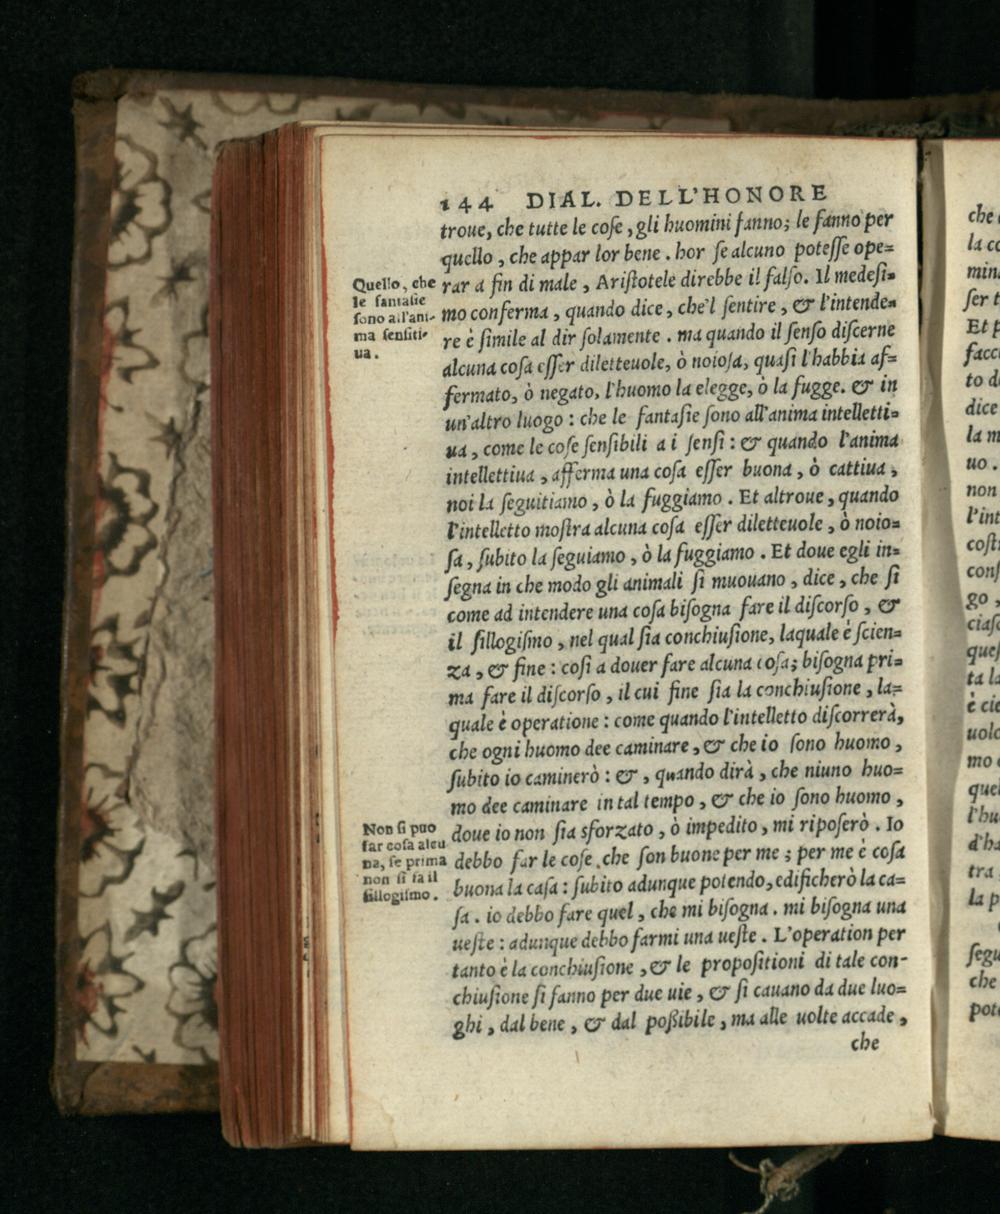 144 DIAL. DELL'HONORE
troue, che tutte le coſe, gli huomini fanno; le fanno per
quello, che appar lor bene. hor ſe alcuno poteſſe ope=
rar a fin di male, Ariſtotele direbbe il falſo. Il medeſi=
mo conferma, quando dice, che'l ſentire, & l'intende=
re è ſimile al dir ſolamente. ma quando il ſenſo diſcerne
alcuna coſa eſſer diletteuole, ò noioſa, quaſi l'habbia af=
fermato, ò negato, l'huomo la elegge, ò la fugge. & in
un'altro luogo: che le fantaſie ſono all'anima intelletti=
ua, come le coſe ſenſibili a i ſenſi: & quando l'anima
intellettiua, afferma una coſa eſſer buona, ò cattiua,
noi la ſeguitiamo, ò la fuggiamo. Et altroue, quando
l'intelletto moſtra alcuna coſa eſſer diletteuole, ò noio=
ſa, ſubito la ſeguiamo, ò la fuggiamo. Et doue egli in=
ſegna in che modo gli animali ſi muouano, dice, che ſi
come ad intendere una coſa biſogna fare il diſcorſo, &
il ſillogiſmo, nel qual ſia conchiuſione, laquale è ſcien=
za, & fine: coſi a douer fare alcuna coſa; biſogna pri=
ma fare il diſcorſo, il cui fine ſia la conchiuſione, la=
quale è operatione: come quando l'intelletto diſcorrerà,
che ogni huomo dee caminare, & che io ſono huomo,
ſubito io caminerò: &, quando dirà, che niuno huo=
mo dee caminare in tal tempo, & che io ſono huomo,
doue io non ſia sforzato, ò impedito, mi ripoſerò. Io
debbo far le coſe che ſon buone per me; per me è coſa
buona la caſa: ſubito adunque potendo, edificherò la ca=
ſa. io debbo fare quel, che mi biſogna. mi biſogna una
ueſte: adunque debbo farmi una ueſte. L'operation per
tanto è la conchiuſione, & le propoſitioni di tale con-
chiuſione ſi fanno per due uie, & ſi cauano da due luo=
ghi, dal bene, & dal poßibile, ma alle uolte accade,
che
Quello, che
le fantaſie
ſono all'ani-
ma ſenſiti-
ua.
Non ſi puo
far coſa alcu
na, ſe prima
non ſi fa il
ſillogiſmo.
che
la co
min
ſer t
Et p
facc
to d
dice
la m
uo.
non
l'int
coſt
conſ
go,
ciaſ
queſ
ta la
è cie
uolo
mo
quel
l'hu
d'ha
tra
la p
ſegu
che
pote